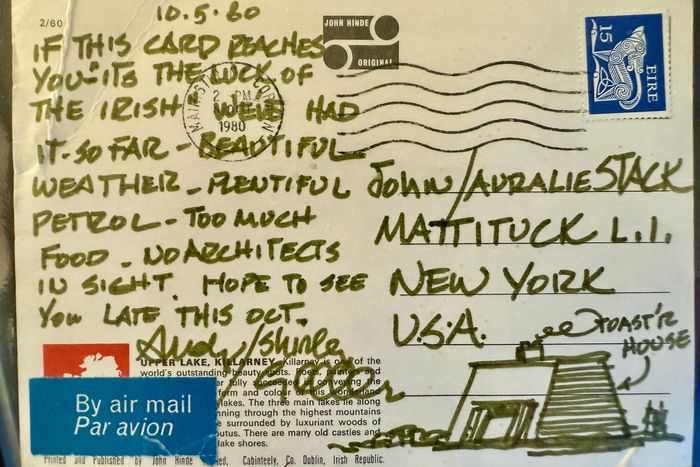 10.5.80
2/60
IF THIS CARD REACHES
YOU-ITS THE LUCK OF
THE IRISH WEVE HAD
IT-SO FAR - BEAUTIFUL
WEATHER - PLENTIFUL
PETROL - TOO MUCH
FOOD - NO ARCHITECTS
IN SIGHT. HOPE TO SEE
YOU LATE THIS OCT.
Andy/Shirle
JOHN HINDE
ORIGINAL
2 PM
1980
15
EIRE
JOHN/AURALIE STACK
MATTITUCK L.I.
NEW YORK
U.S.A.
TOAST'R
HOUSE
UPPER LAKE, KILLARNEY. Killarney is one of the
world's outstanding beauty spots. Poets, painters and
fully succeeded in conveying the
form and color of this wonderland
lakes. The three main lakes lie along
nning through the highest mountains
e surrounded by luxuriant woods of
butus. There are many old castles and
lake shores.
By air mail
Par avion
Printed and Published by John Hinde ed, Cabinteely, Co. Dublin, Irish Republic.